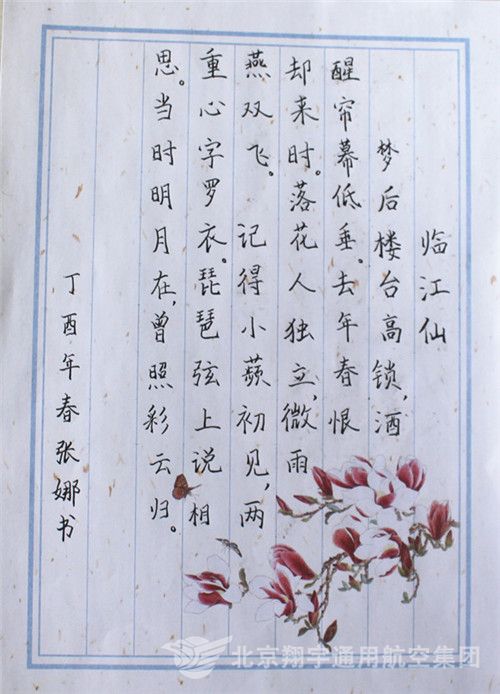 临江仙
梦后楼台高锁，酒
醒帘幕低垂。去年春恨
却来时。落花人独立，微雨
燕双飞。 记得小蘋初见，两
重心字罗衣。琵琶弦上说相
思。当时明月在，曾照彩云归。
丁酉年春张娜书
北京翔宇通用航空集团